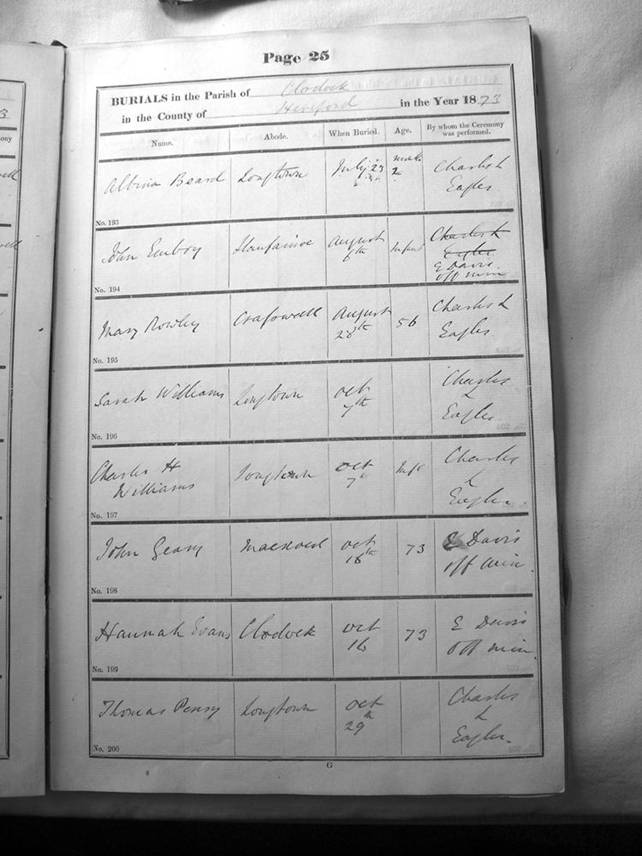 Page 25
BURIALS in the Parish of Clodock
in the County of Hereford in the Year 1873
Name. Abode. When Buried. Age. By whom the Ceremony was performed.
Albina Beard Longtown July 23 2 Charles L
Eagles
No. 193
John August Infant Charles L
6th Eagles
E Davis
off min
No. 194
Mary Rowley Crasswell August 56 Charles L
28th Eagles
No. 195
Sarah Williams Longtown Oct Charles
7th L
Eagles
No. 196
Charles H Longtown Oct Inft Charles
Williams 7th L
Eagles.
No. 197
John Geary Oct 73 E Davis
16th off min.
No. 198
Hannah Evans Clodock Oct 73 E Davis
16 off min.
No. 199
Thomas Penry Longtown Oct Charles
29th L
Eagles.
No. 200
G